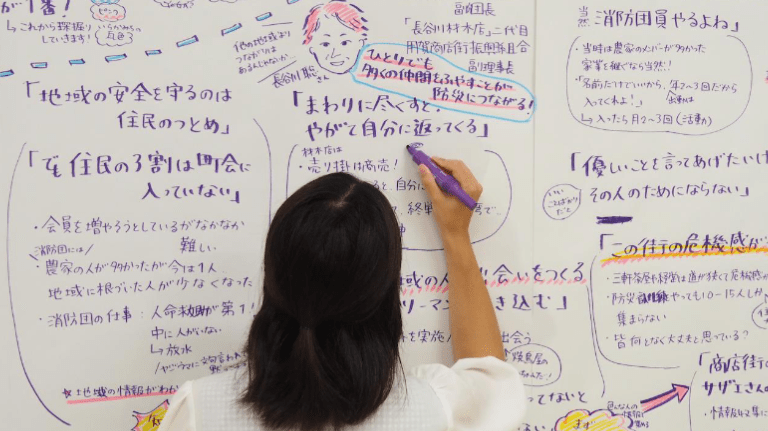 1番!
↳これから深掘り
していきます!
「地域の安全を守るのは
住民のつとめ」
「でも住民の3割は町会に
入っていない」
・会員を増やろうとしているがなかなか
難しい
消防団には
・農家の人が多かったが今は1人
地域に根づいた人が少なくなった
・消防団の仕事:人命救助が第1!
中に人がいない
↳放水
☆地域の情報がわか
長谷川 聡さん
副団長
「長谷川材木店」二代目
用賀商店街振興組合
副理事長
ひとりでも
多くの仲間をふやすことが
防災につながる!
「まわりに尽くすと、
やがて自分に返ってくる」
材木店は
・売り掛け商売!
ると、自分に
、終戦
域の人
出会いをつくる
リーマン
き込む」
を実施
出会う
当然
消防団員やるよね」
・当時は農家のメンバーが多かった
家業を継ぐなら当然!!
・「名前だけでいいから、年2〜3回だから
入ってくれよ!」
↳入ったら月2〜3回(活動)
「優しいことを言ってあげたいけ
その人のためにならない」
いい
ことばかり
だと
「この街の危機感が
・三軒茶屋や経堂は道が狭くて危機感が
・防災訓練やっても10〜15人しか
集まらない
・皆 何となく大丈夫と思っている?
「商店街の
サザエさんの
・情報収集に
いろんなの
情報
集める
まず